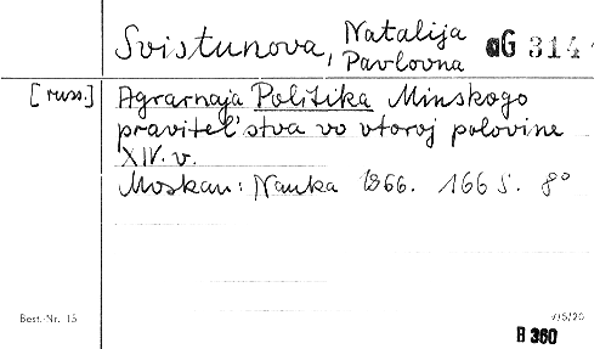 Svistunova, Natalija Pavlovna aG 314
[russ.] Agrarnaja Politika Minskogo
pravitel'stva vo vtoroj polovine
XIV. v.
Moskau: Nauka 1966. 166 S. 8°
Best.-Nr. 15
V/5/20
B 360